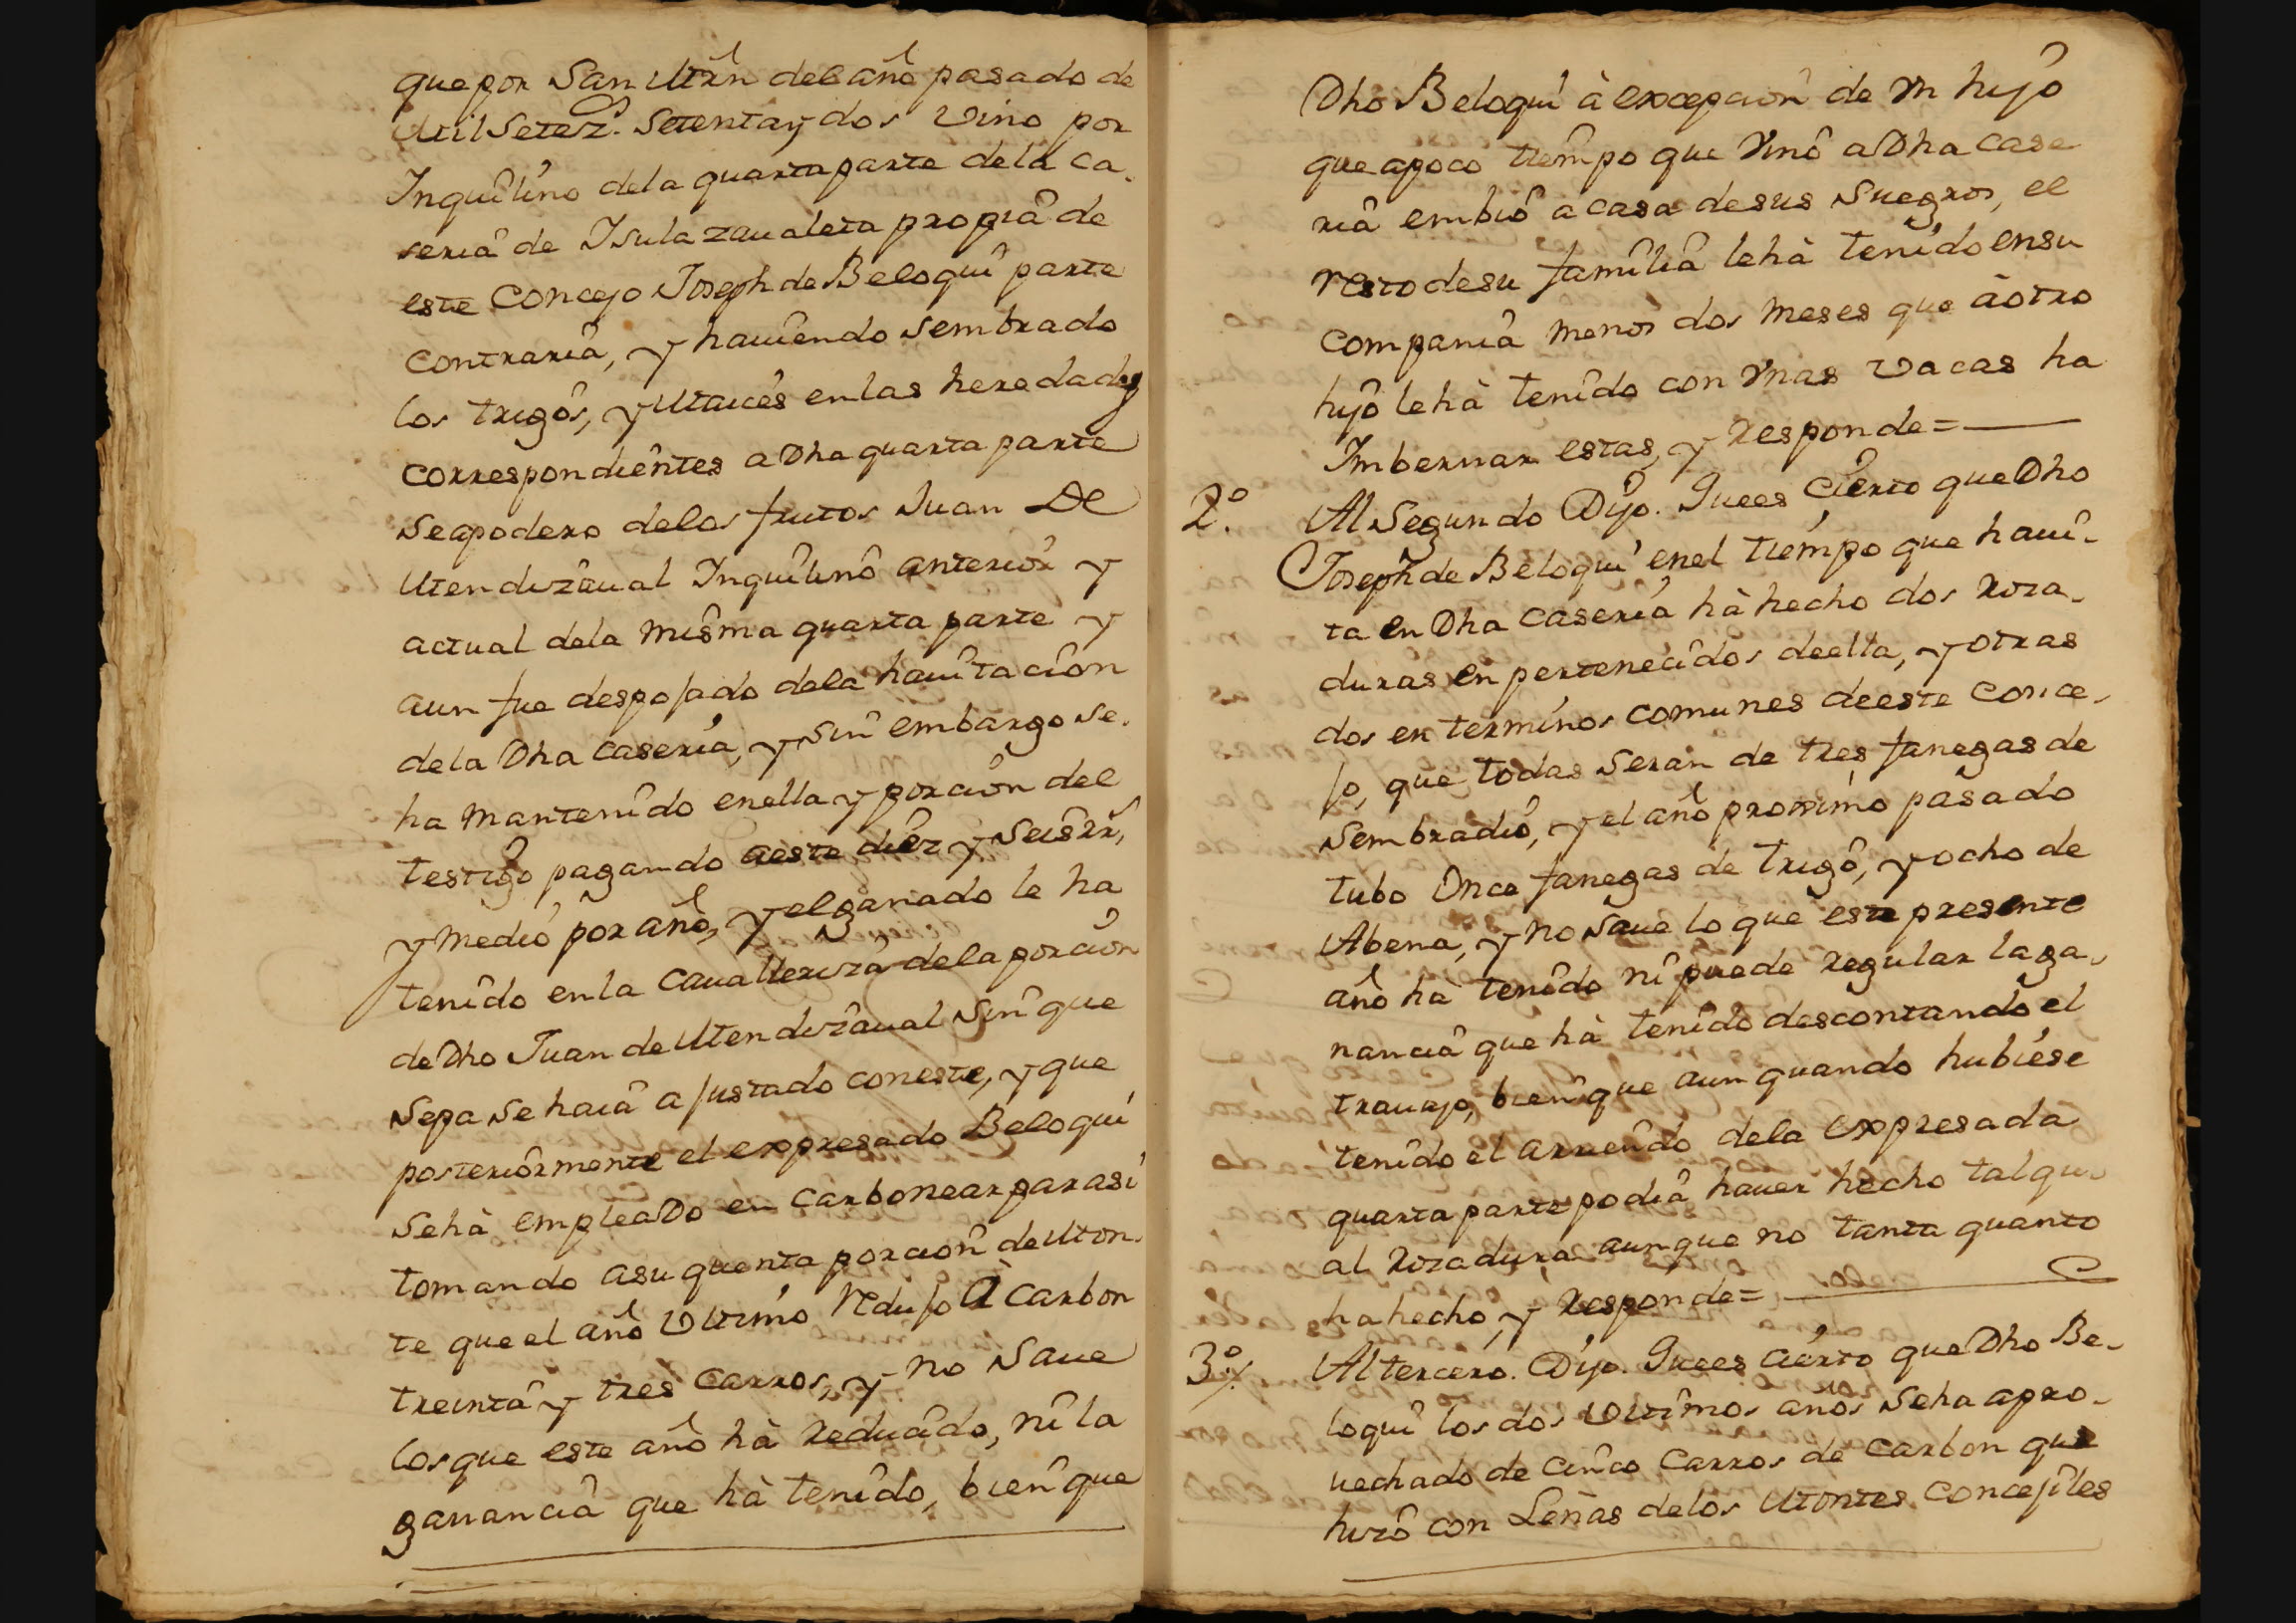 que por San Mrñ del año pasado de
Mil Setez.s Setenta y dos vino por
Inquilino de la quarta parte de la ca-
seria de Isulazaualeta propia de
este Concejo Joseph de Beloqui parte
contraria, y hauiendo sembrado
los trigos, y Maices en las heredades
correspondientes a Dha quarta parte
se apodero de los frutos Juan De
Mendizaual Inquilino anterior y
actual de la misma quarta parte y
aun fue despojado de la hauitacion
de la Dha caseria, y sin embargo se
ha mantenido en ella y porcion del
testigo, pagando a este diez y seis rr.s
y medio por año, y el ganado le ha
tenido en la caualleriza de la porcion
de Dho Juan de Mendizaual sin que
sepa se haia ajustado con este, y que
posteriormente el expresado Beloqui
se hà empleaDo en carbonear para si
tomando a su quenta porcion de Mon-
te que el año vltimo redujo à carbon
treinta y tres carros, y no saue
los que este año hà reducido, ni la
ganancia que hà tenido, bien que
Dho Beloqui à excepcion de vn hijo
que a poco tiempo que vino a Dha case
ria embio a casa de sus suegros, el
resto de su familia le hà tenido en su
compania menos dos meses que à otro
hijo le hà tenido con vnas vacas ha
Imbernar estas, y responde=
2.º Al Segundo Dijo. Que es cierto que Dho
Joseph de Beloqui en el tiempo que haui-
ta en Dha caseria hà hecho dos roza-
duras en pertenecidos de ella, y otras
dos en terminos comunes de este conce-
jo, que todas seran de tres fanegas de
sembradio, y el año proximo pasado
tubo once fanegas de trigo, y ocho de
Abena, y no saue lo que este presente
año hà tenido ni puede regular la ga-
nancia que hà tenido descontando el
trauajo, bien que aun quando hubiese
tenido el arriendo de la expresada
quarta parte podia hauer hecho tal qu-
al rozadura aunque no tanta quanto
ha hecho, y responde=
3.º Al tercero. Dijo. Que es cierto que Dho Be-
loqui los dos vltimos años se ha apro-
uechado de cinco carros de carbon que
hizo con Leñas de los Montes concejiles